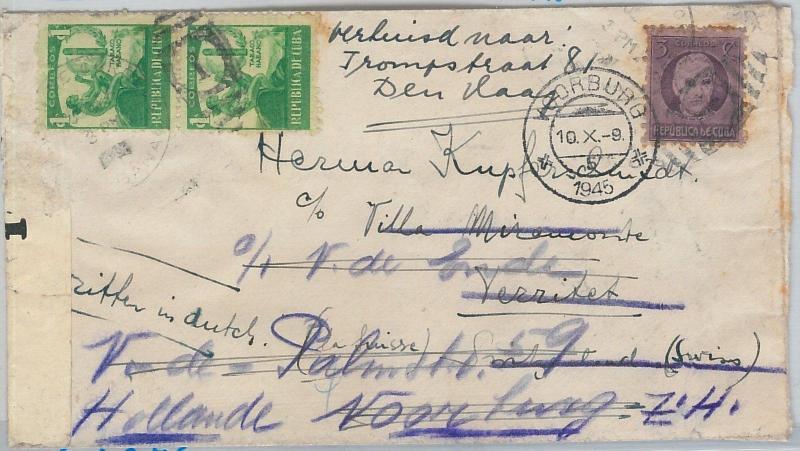 CORREOS
TABACO
HABANO
REPUBLICA DE CUBA
1
CORREOS
TABACO
HABANO
REPUBLICA DE CUBA
1
verhuisd naar:
Trompstraat 81
Den Haag
3 CORREOS C
REPÚBLICA DE CUBA
VOORBURG
10.X-9.
1945
Herman Kupferschmidt.
c/o Villa Miramonte
c/o V. de Ende
Territet
written in dutch.
(La Suisse) Switzerland (Swiss)
V. de Palmstr. 59
Hollande Voorburg Z.H.